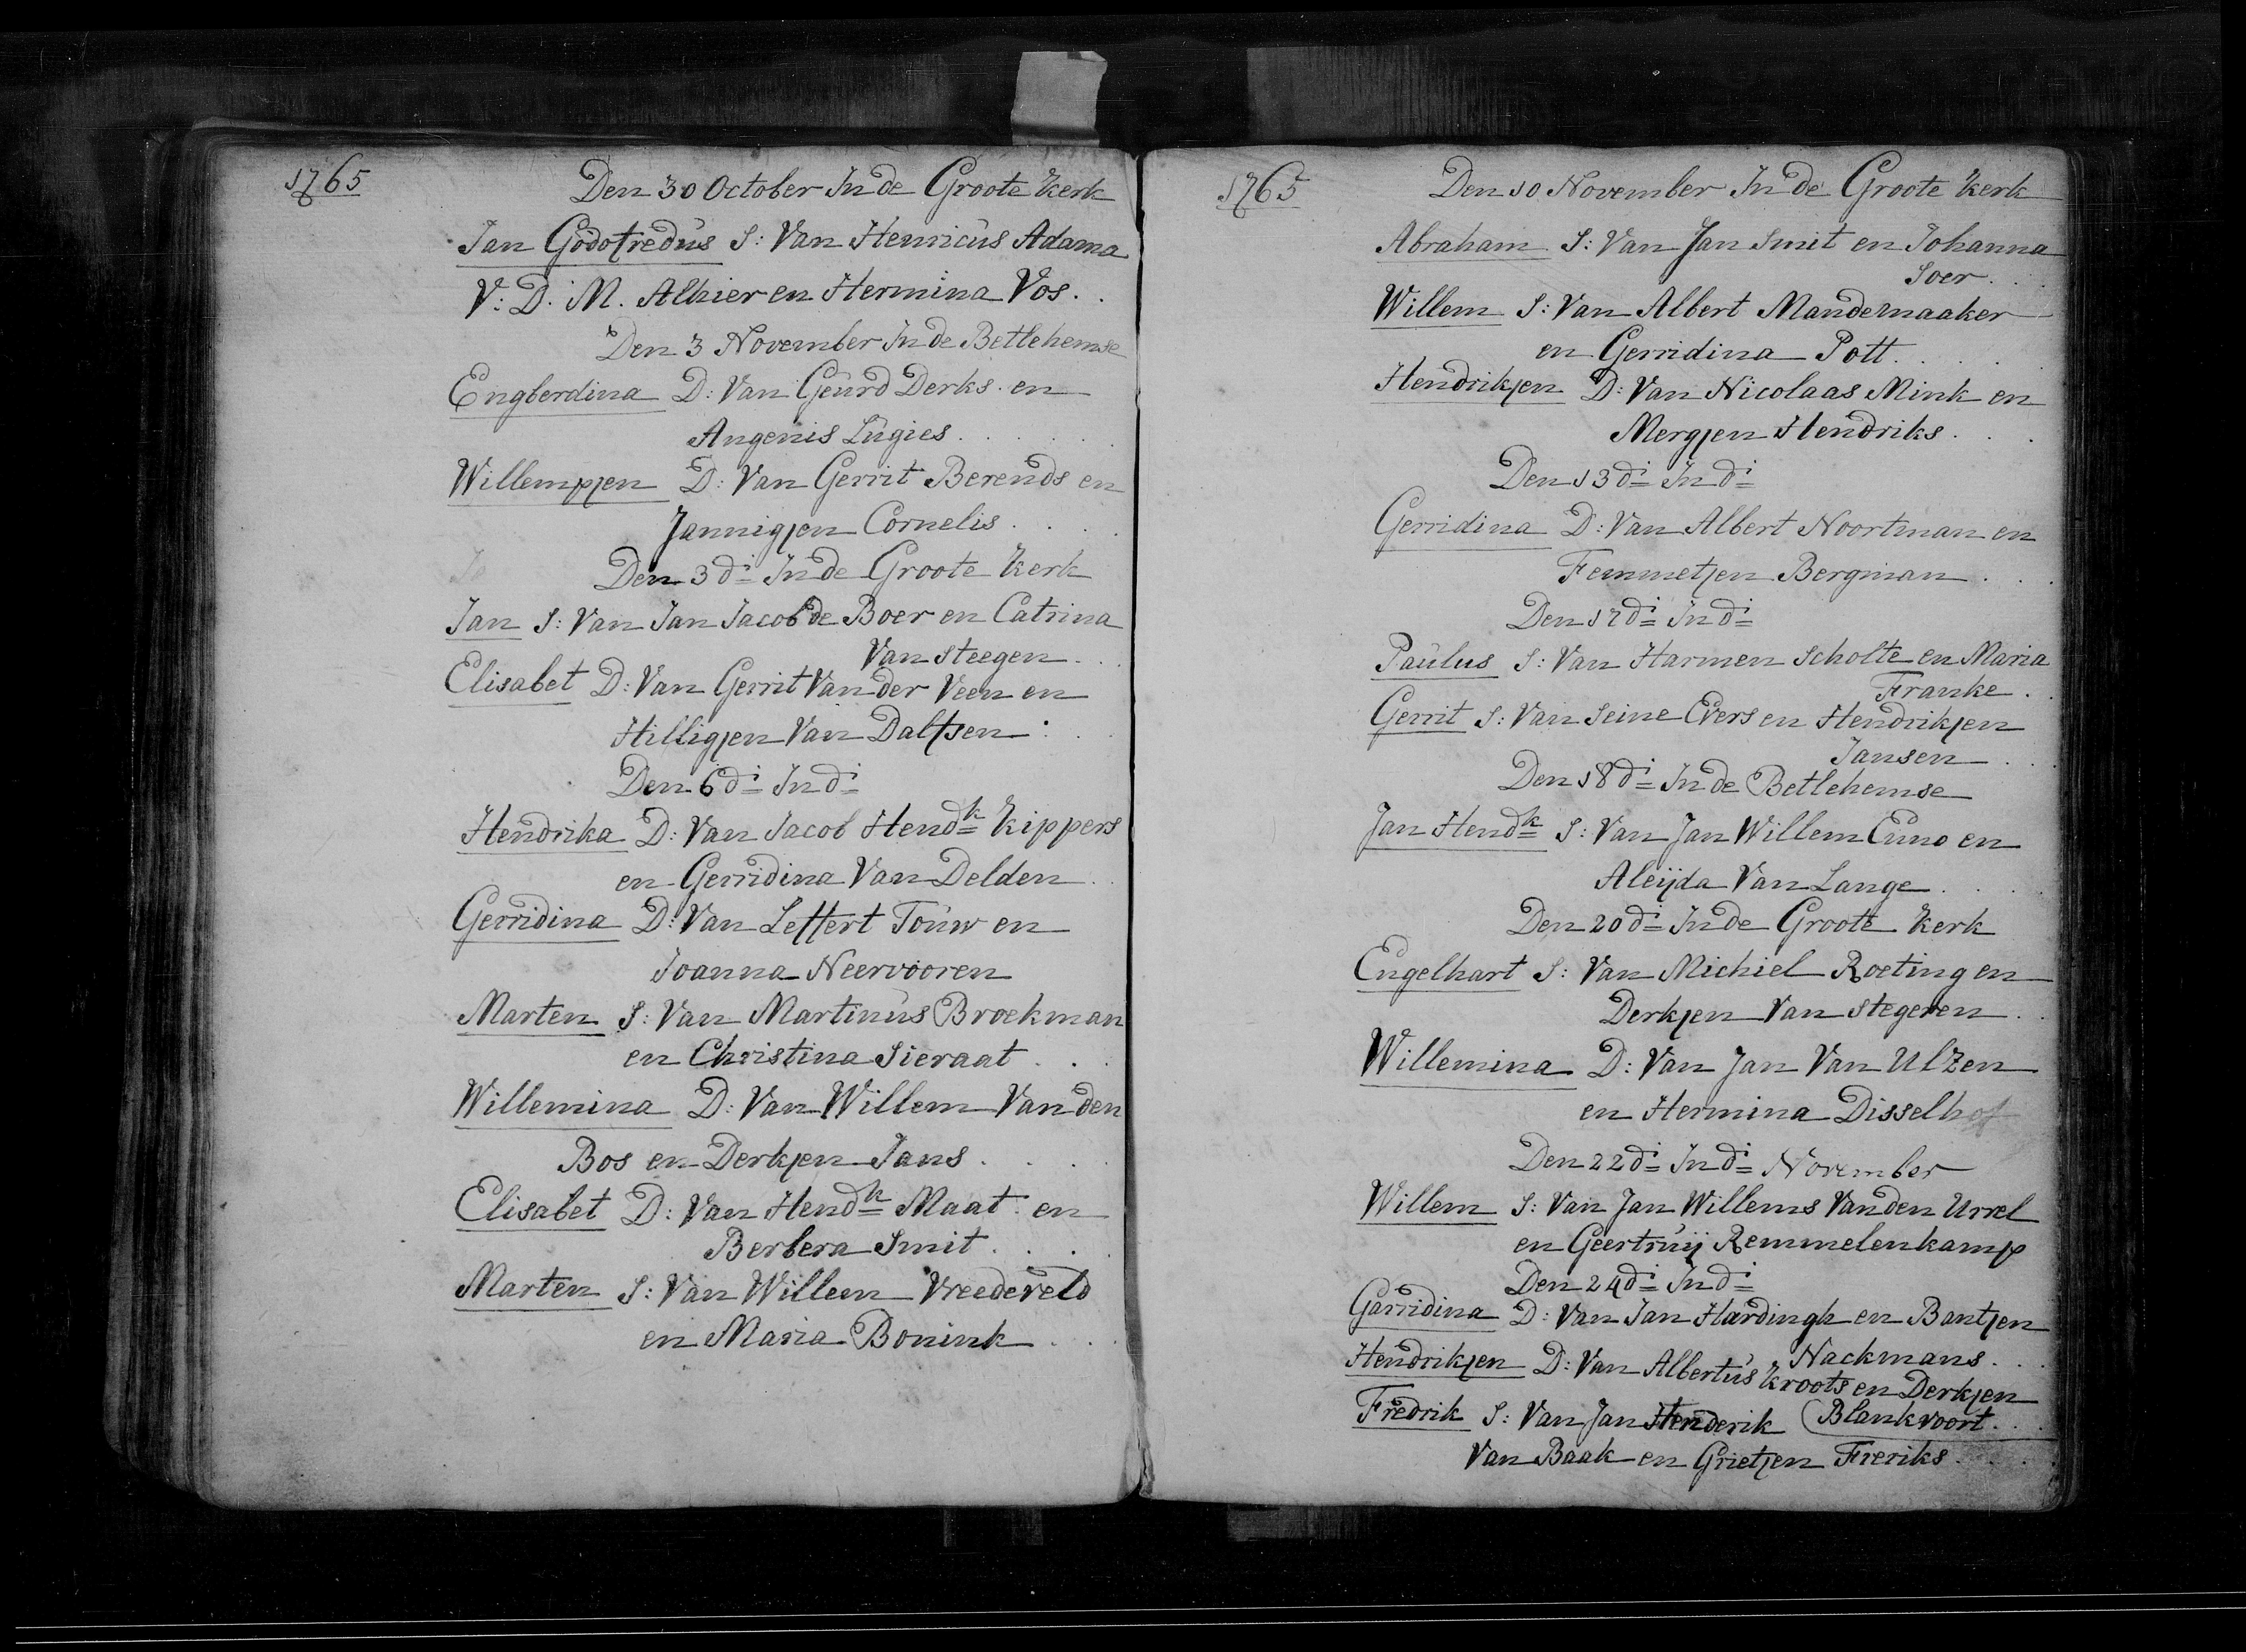 1765
Den 30 October In de Groote Kerk
Jan Godofredus S: Van Henricus Adama
V: D. M. Alhier en Hermina Vos . .
Den 3 November In de Betlehemse
Engberdina D: Van Geurd Derks en
Angenis Lugies . . . . .
Willempjen D: Van Gerrit Berends en
Jannigjen Cornelis . . .
Den 3 di In de Groote Kerk
Jan S: Van Jan Jacob de Boer en Catrina
Van Steegen . .
Elisabet D: Van Gerrit Van der Veen en
Hilligjen Van Dalfsen : . .
Den 6 di In di
Hendrika D: Van Jacob Hendk Kippers
en Gerridina Van Delden . .
Gerridina D: Van Leffert Touw en
Joanna Neervooren
Marten S: Van Martinus Broekman
en Christina Sieraat . . .
Willemina D: Van Willem Van den
Bos en Derkjen Jans . . . .
Elisabet D: Van Hendk Maat en
Berbera Smit . . . .
Marten S: Van Willem Vreedeveld
en Maria Bonink . . .
1765
Den 10 November In de Groote Kerk
Abraham S: Van Jan Smit en Johanna
Soer . . .
Willem S: Van Albert Mandemaaker
en Gerridina Pott . . . .
Hendrikjen D: Van Nicolaas Mink en
Mergjen Hendriks . . .
Den 13 di In di
Gerridina D: Van Albert Noortman en
Femmetjen Bergman . . .
Den 17 di In di
Paulus S: Van Harmen Scholte en Maria
Franke . .
Gerrit S: Van Seine Evers en Hendrikjen
Jansen . . .
Den 18 di In de Betlehemse
Jan Hendk S: Van Jan Willem Cuno en
Aleijda Van Lange . . . .
Den 20 di In de Groote Kerk
Engelhart S: Van Michiel Roeting en
Derkjen Van Stegeren . .
Willemina D: Van Jan Van Ulzen
en Hermina Disselhof
Den 22 di In di November
Willem S: Van Jan Willems Van den Urrel
en Geertruij Remmelenkamp
Den 24 di In di
Garridina D: Van Jan Hardingh en Bantjen
Nackmans . . .
Hendrikjen D: Van Albertus Kroots en Derkjen
Blankvoort . . .
Fredrik S: Van Jan Henderik
Van Baak en Grietjen Freriks . . . .